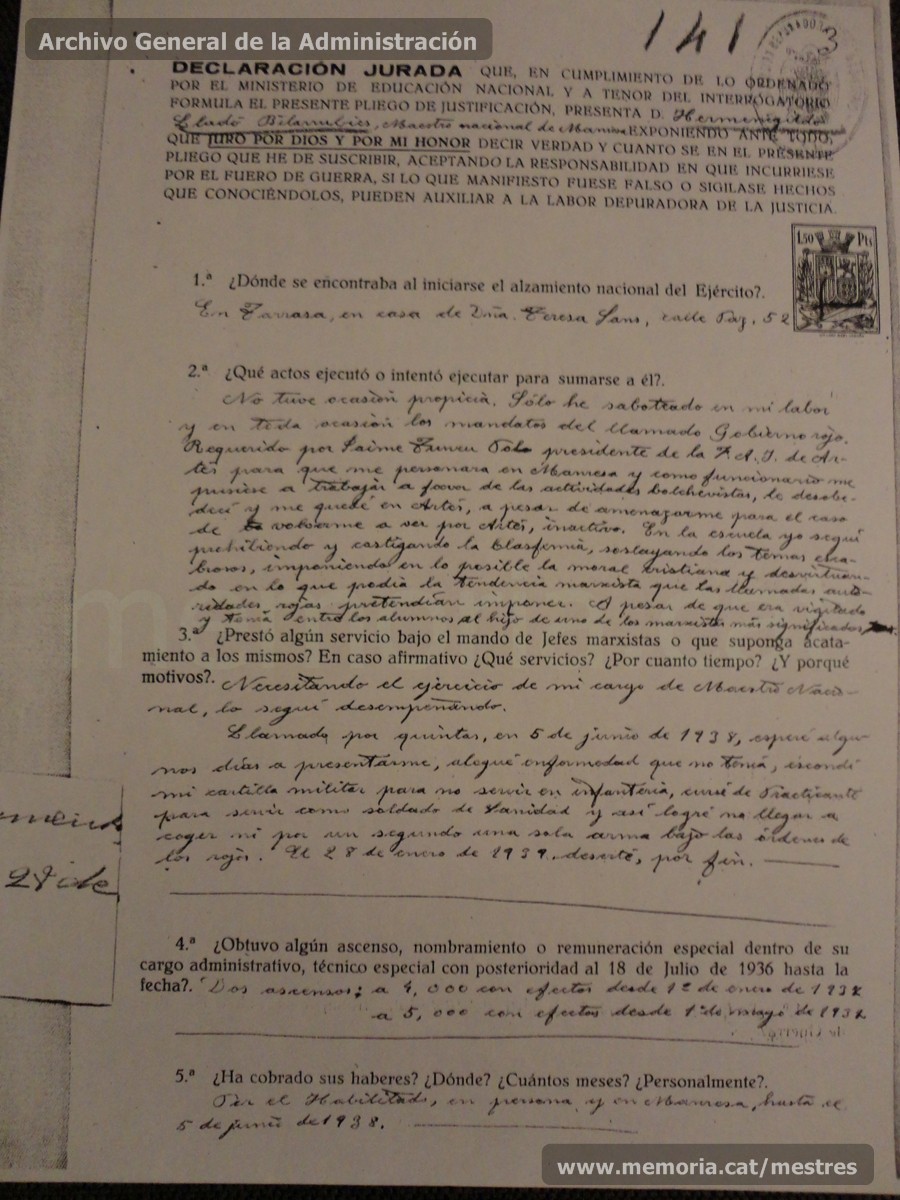 Archivo General de la Administración
141
3
DECLARACIÓN JURADA QUE, EN CUMPLIMIENTO DE LO ORDENADO
POR EL MINISTERIO DE EDUCACIÓN NACIONAL Y A TENOR DEL INTERROGATORIO
FORMULA EL PRESENTE PLIEGO DE JUSTIFICACIÓN, PRESENTA D. Hermenegildo
Lladó Bilarrubies, Maestro nacional de Manresa EXPONIENDO ANTE TODO,
QUE JURO POR DIOS Y POR MI HONOR DECIR VERDAD Y CUANTO SE EN EL PRESENTE
PLIEGO QUE HE DE SUSCRIBIR, ACEPTANDO LA RESPONSABILIDAD EN QUE INCURRIESE
POR EL FUERO DE GUERRA, SI LO QUE MANIFIESTO FUESE FALSO O SIGILASE HECHOS
QUE CONOCIÉNDOLOS, PUEDEN AUXILIAR A LA LABOR DEPURADORA DE LA JUSTICIA.
1,50 Pts
1.ª ¿Dónde se encontraba al iniciarse el alzamiento nacional del Ejército?.
En Tarrasa, en casa de Dña. Teresa Sans, calle Paz, 52
2.ª ¿Qué actos ejecutó o intentó ejecutar para sumarse a él?.
No tuve ocasión propicia. Sólo he saboteado en mi labor
y en toda ocasión los mandatos del llamado Gobierno rojo.
Requerido por Jaime presidente de la F.A.I. de Ar-
tés para que me personara en Manresa y como funcionario me
pusiese a trabajar a favor de las actividades bolchevistas, le desobe-
decí y me quedé en Artés, a pesar de amenazarme para el caso
de volverme a ver por Artés, inactivo. En la escuela yo seguí
prohibiendo y castigando la blasfemia, soslayando los temas esca-
brosos, imponiendo en lo posible la moral cristiana y desvirtuan-
do en lo que podía la tendencia marxista que las llamadas auto-
ridades rojas pretendían imponer. A pesar de que era vigilado
y tenía entre los alumnos al hijo de uno de los marxistas más significados
3.ª ¿Prestó algún servicio bajo el mando de Jefes marxistas o que suponga acata-
miento a los mismos? En caso afirmativo ¿Qué servicios? ¿Por cuanto tiempo? ¿Y porqué
motivos?. Necesitando el ejercicio de mi cargo de Maestro Nacio-
nal, lo seguí desempeñando.
Llamado por quintas, en 5 de junio de 1938, esperé algu-
nos días a presentarme, alegué enfermedad que no tenía, escondí
mi cartilla militar para no servir en infantería, cursé de Practicante
para servir como soldado de Sanidad y así logré no llegar a
coger ni por un segundo una sola arma bajo las órdenes de
los rojos. El 28 de enero de 1939 deserté, por fin.
28 de
4.ª ¿Obtuvo algún ascenso, nombramiento o remuneración especial dentro de su
cargo administrativo, técnico especial con posterioridad al 18 de Julio de 1936 hasta la
fecha?. Dos ascensos: a 4,000 con efectos desde 1º de enero de 193
a 5,000 con efectos desde 1º de mayo de 193
5.ª ¿Ha cobrado sus haberes? ¿Dónde? ¿Cuántos meses? ¿Personalmente?.
Por el Habilitado, en persona y en Manresa, hasta el
5 de junio de 1938.
www.memoria.cat/mestres